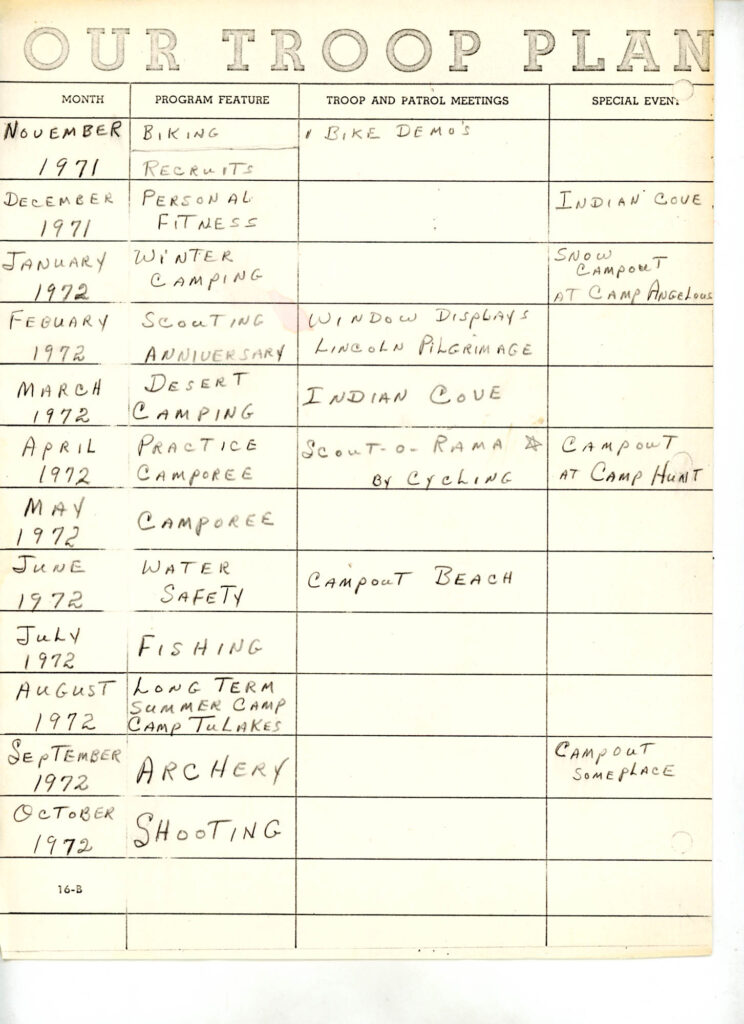 OUR TROOP PLAN
MONTH PROGRAM FEATURE TROOP AND PATROL MEETINGS SPECIAL EVENT
NOVEMBER 1971 BIKING BIKE DEMO'S
RECRUITS
DECEMBER 1971 PERSONAL FITNESS INDIAN COVE
JANUARY 1972 WINTER CAMPING SNOW CAMPOUT AT CAMP ANGELOUS
FEBUARY 1972 SCOUTING ANNIVERSARY WINDOW DISPLAYS LINCOLN PILGRIMAGE
MARCH 1972 DESERT CAMPING INDIAN COVE
APRIL 1972 PRACTICE CAMPOREE SCOUT-O-RAMA ☆ BY CYCLING CAMPOUT AT CAMP HUNT
MAY 1972 CAMPOREE
JUNE 1972 WATER SAFETY CAMPOUT BEACH
JULY 1972 FISHING
AUGUST 1972 LONG TERM SUMMER CAMP CAMP TULAKES
SEPTEMBER 1972 ARCHERY CAMPOUT SOMEPLACE
OCTOBER 1972 SHOOTING
16-B